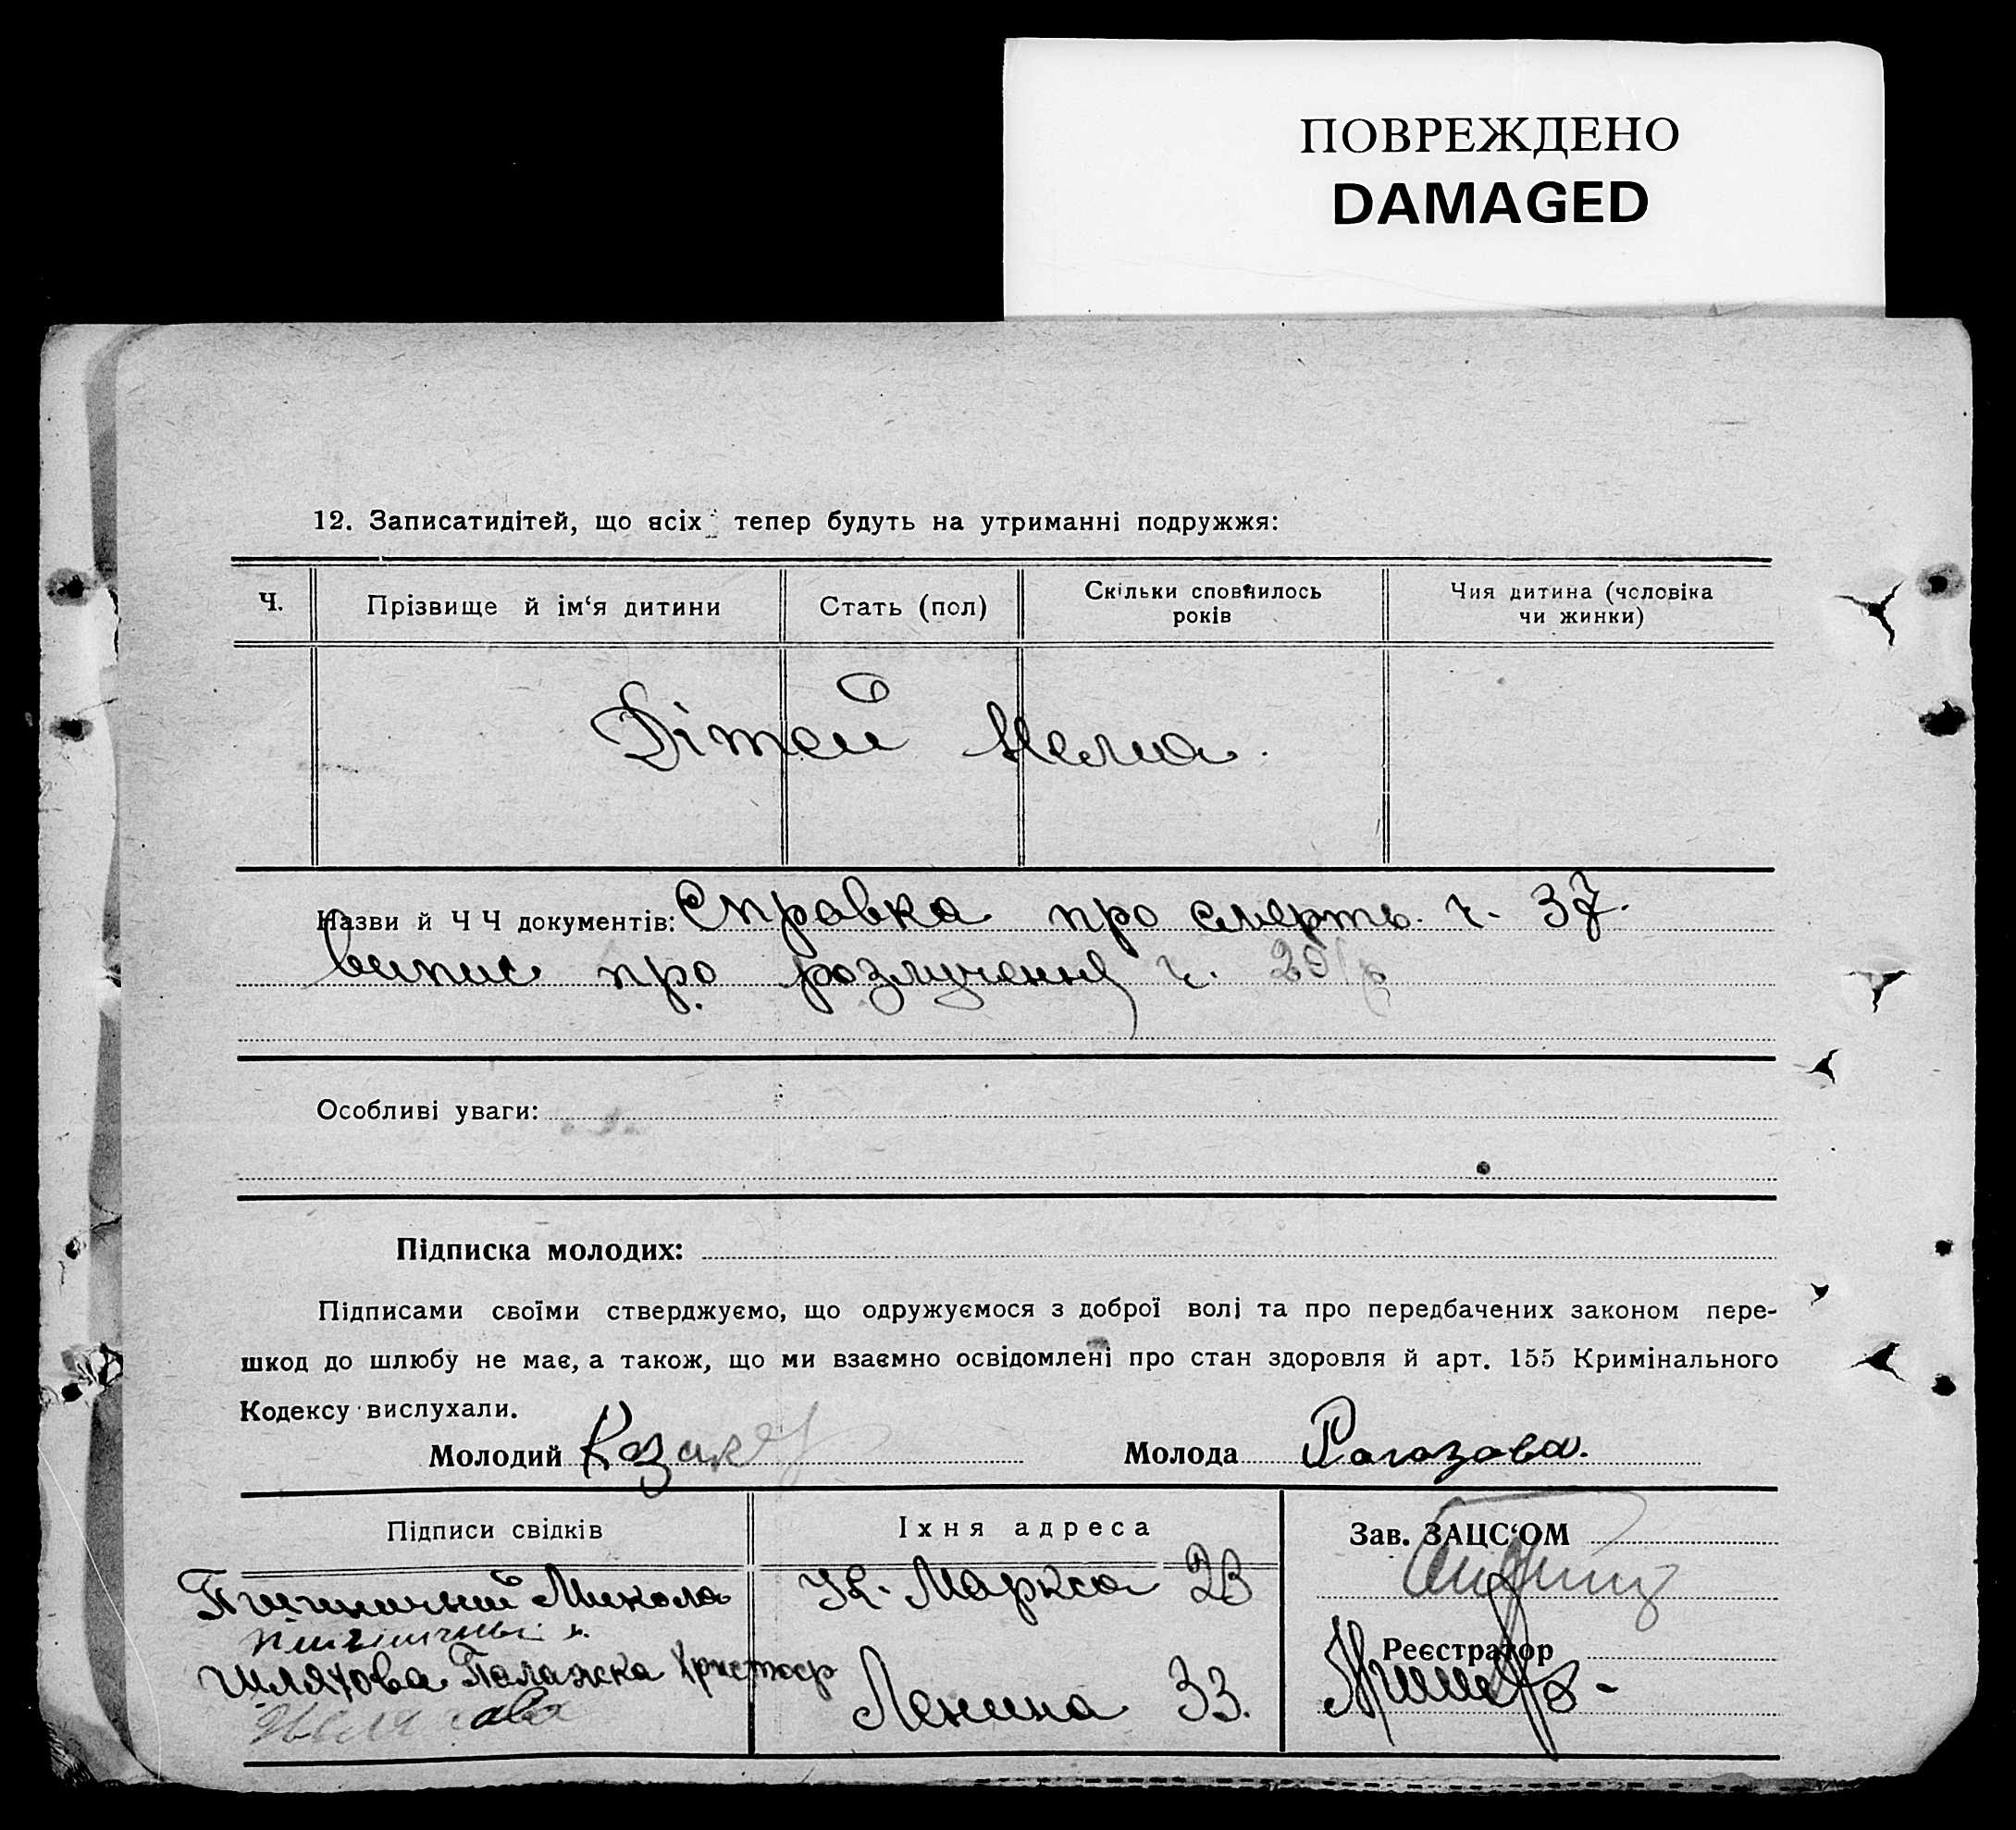 ПОВРЕЖДЕНО
DAMAGED
12. Записатидітей, що всіх тепер будуть на утриманні подружжя:
Ч.
Прізвище й ім‘я дитини
Стать (пол)
Скільки сповнилось
років
Чия дитина (чоловіка
чи жинки)
Дітей Нема.
Назви й Ч Ч документів: Справка про смерть ч. 37.
випис про розлучення ч.
Особливі уваги:
Підписка молодих:
Підписами своїми стверджуємо, що одружуємося з доброї волі та про передбачених законом пере-
шкод до шлюбу не має, а також, що ми взаємно освідомлені про стан здоровля й арт. 155 Кримінального
Кодексу вислухали.
Молодий Казак
Молода Рагазова.
Підписи свідків
Їхня адреса
Зав. ЗАЦС‘ОМ
Пшеничный Микола
К. Маркса 23
Реєстратор
Шляхова Палажка Христоф
Ленина 33.